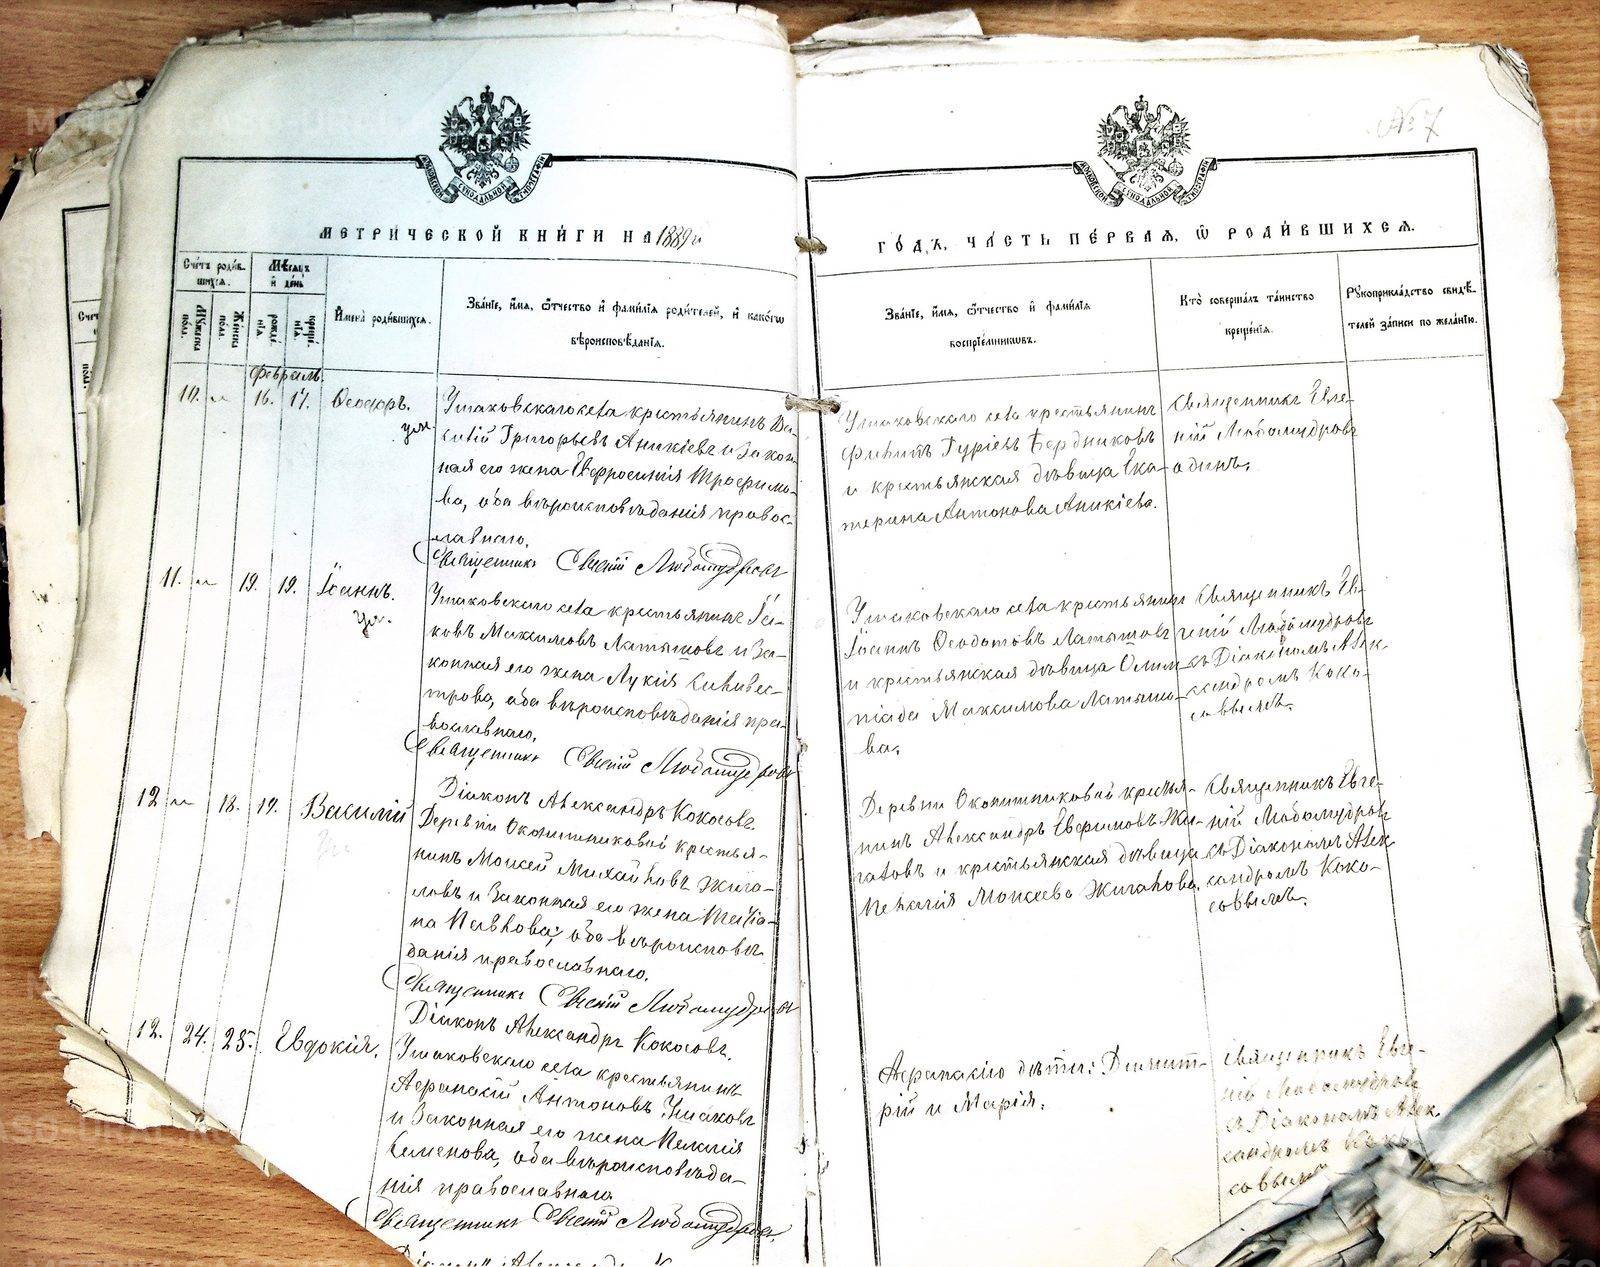 № 7
МОСКОВСКОЙ СѴНОДАЛЬНОЙ ТИПОГРАФІИ
МОСКОВСКОЙ СѴНОДАЛЬНОЙ ТИПОГРАФІИ
МЕТРИ́ЧЕСКОЙ КНИ́ГИ НА 1889 й
ГО́ДЪ, ЧА́СТЬ ПЕ́РВАЯ, Ѡ РОДИ́ВШИХСЯ.
Сче́тъ роди́в-
шихся.
Мѣсяцъ
и́ де́нь
Му́жеска по́ла.
Же́нска по́ла.
рожде́нія
креще́нія.
И҆мена̀ роди́вшихся.
Зва́ніе, и҆́мя, ѻ҆́тчество и҆ фами́лія роди́телей, и҆ како́гѡ
вѣроисповѣ́данія.
Зва́ніе, и҆́мя, ѻ҆́тчество и҆ фами́лія
воспріе́мниковъ.
Кто̀ соверша́лъ та́инство
креще́нія.
Рꙋкоприкла́дство свидѣ́-
телей за́писи по жела́нію.
Февраль.
10. „ 16. 17. Ѳеодоръ.
ум.
Ушаковскаго села крестьянинъ Ва-
силій Григорьевъ Аникіевъ и закон-
ная его жена Евфросинія Трофимо-
ва, оба вѣроисповѣданія правос-
лавнаго.
Священникъ Евгеній Любомудровъ
Ушаковскаго села крестьянин
Гуріевъ Бердниковъ
и крестьянская дѣвица Ека-
терина Антонова Аникіева.
Священникъ Евге-
ній Любомудровъ
одинъ.
11. „ 19. 19. Іоаннъ.
ум.
Ушаковскаго села крестьянинъ Іа-
ковъ Максимовъ Латышовъ и за-
конная его жена Лукія Сильвес-
трова, оба вѣроисповѣданія пра-
вославнаго.
Священникъ Евгеній Любомудровъ
Діаконъ Александръ Кокосовъ.
Ушаковскаго села крестьянин
Іоаннъ Ѳеодотовъ Латышовъ
и крестьянская дѣвица Олим-
піада Максимова Латышо-
ва.
Священникъ Ев-
геній Любомудровъ
съ Діакономъ Алек-
сандромъ Коко-
совымъ.
12 „ 18. 19. Василій
Деревни Окопишниковой крестья-
нинъ Моисей Михайловъ Жига-
ловъ и законная его жена Татіа-
на Павлова, оба вѣроисповѣ-
данія православнаго.
Священникъ Евгеній Любомудровъ
Діаконъ Александръ Кокосовъ.
Деревни Окопишниковой крестья-
нинъ Александръ Евфимовъ Жи-
галовъ и крестьянская дѣвица
Пелагія Моисеева Жигалова.
Священникъ Евге-
ній Любомудровъ
съ Діакономъ Алек-
сандромъ Коко-
совымъ.
12. 24. 25. Евдокія.
Ушаковскаго села крестьянинъ
Аѳанасій Антоновъ Ушаковъ
и законная его жена Пелагія
Семенова, оба вѣроисповѣда-
нія православнаго.
Священникъ Евгеній Любомудровъ.
Аѳанасію дѣти: Димит-
рій и Марія.
Священникъ Евге-
ній Любомудровъ
съ Діакономъ Алек
сандромъ Коко-
совымъ